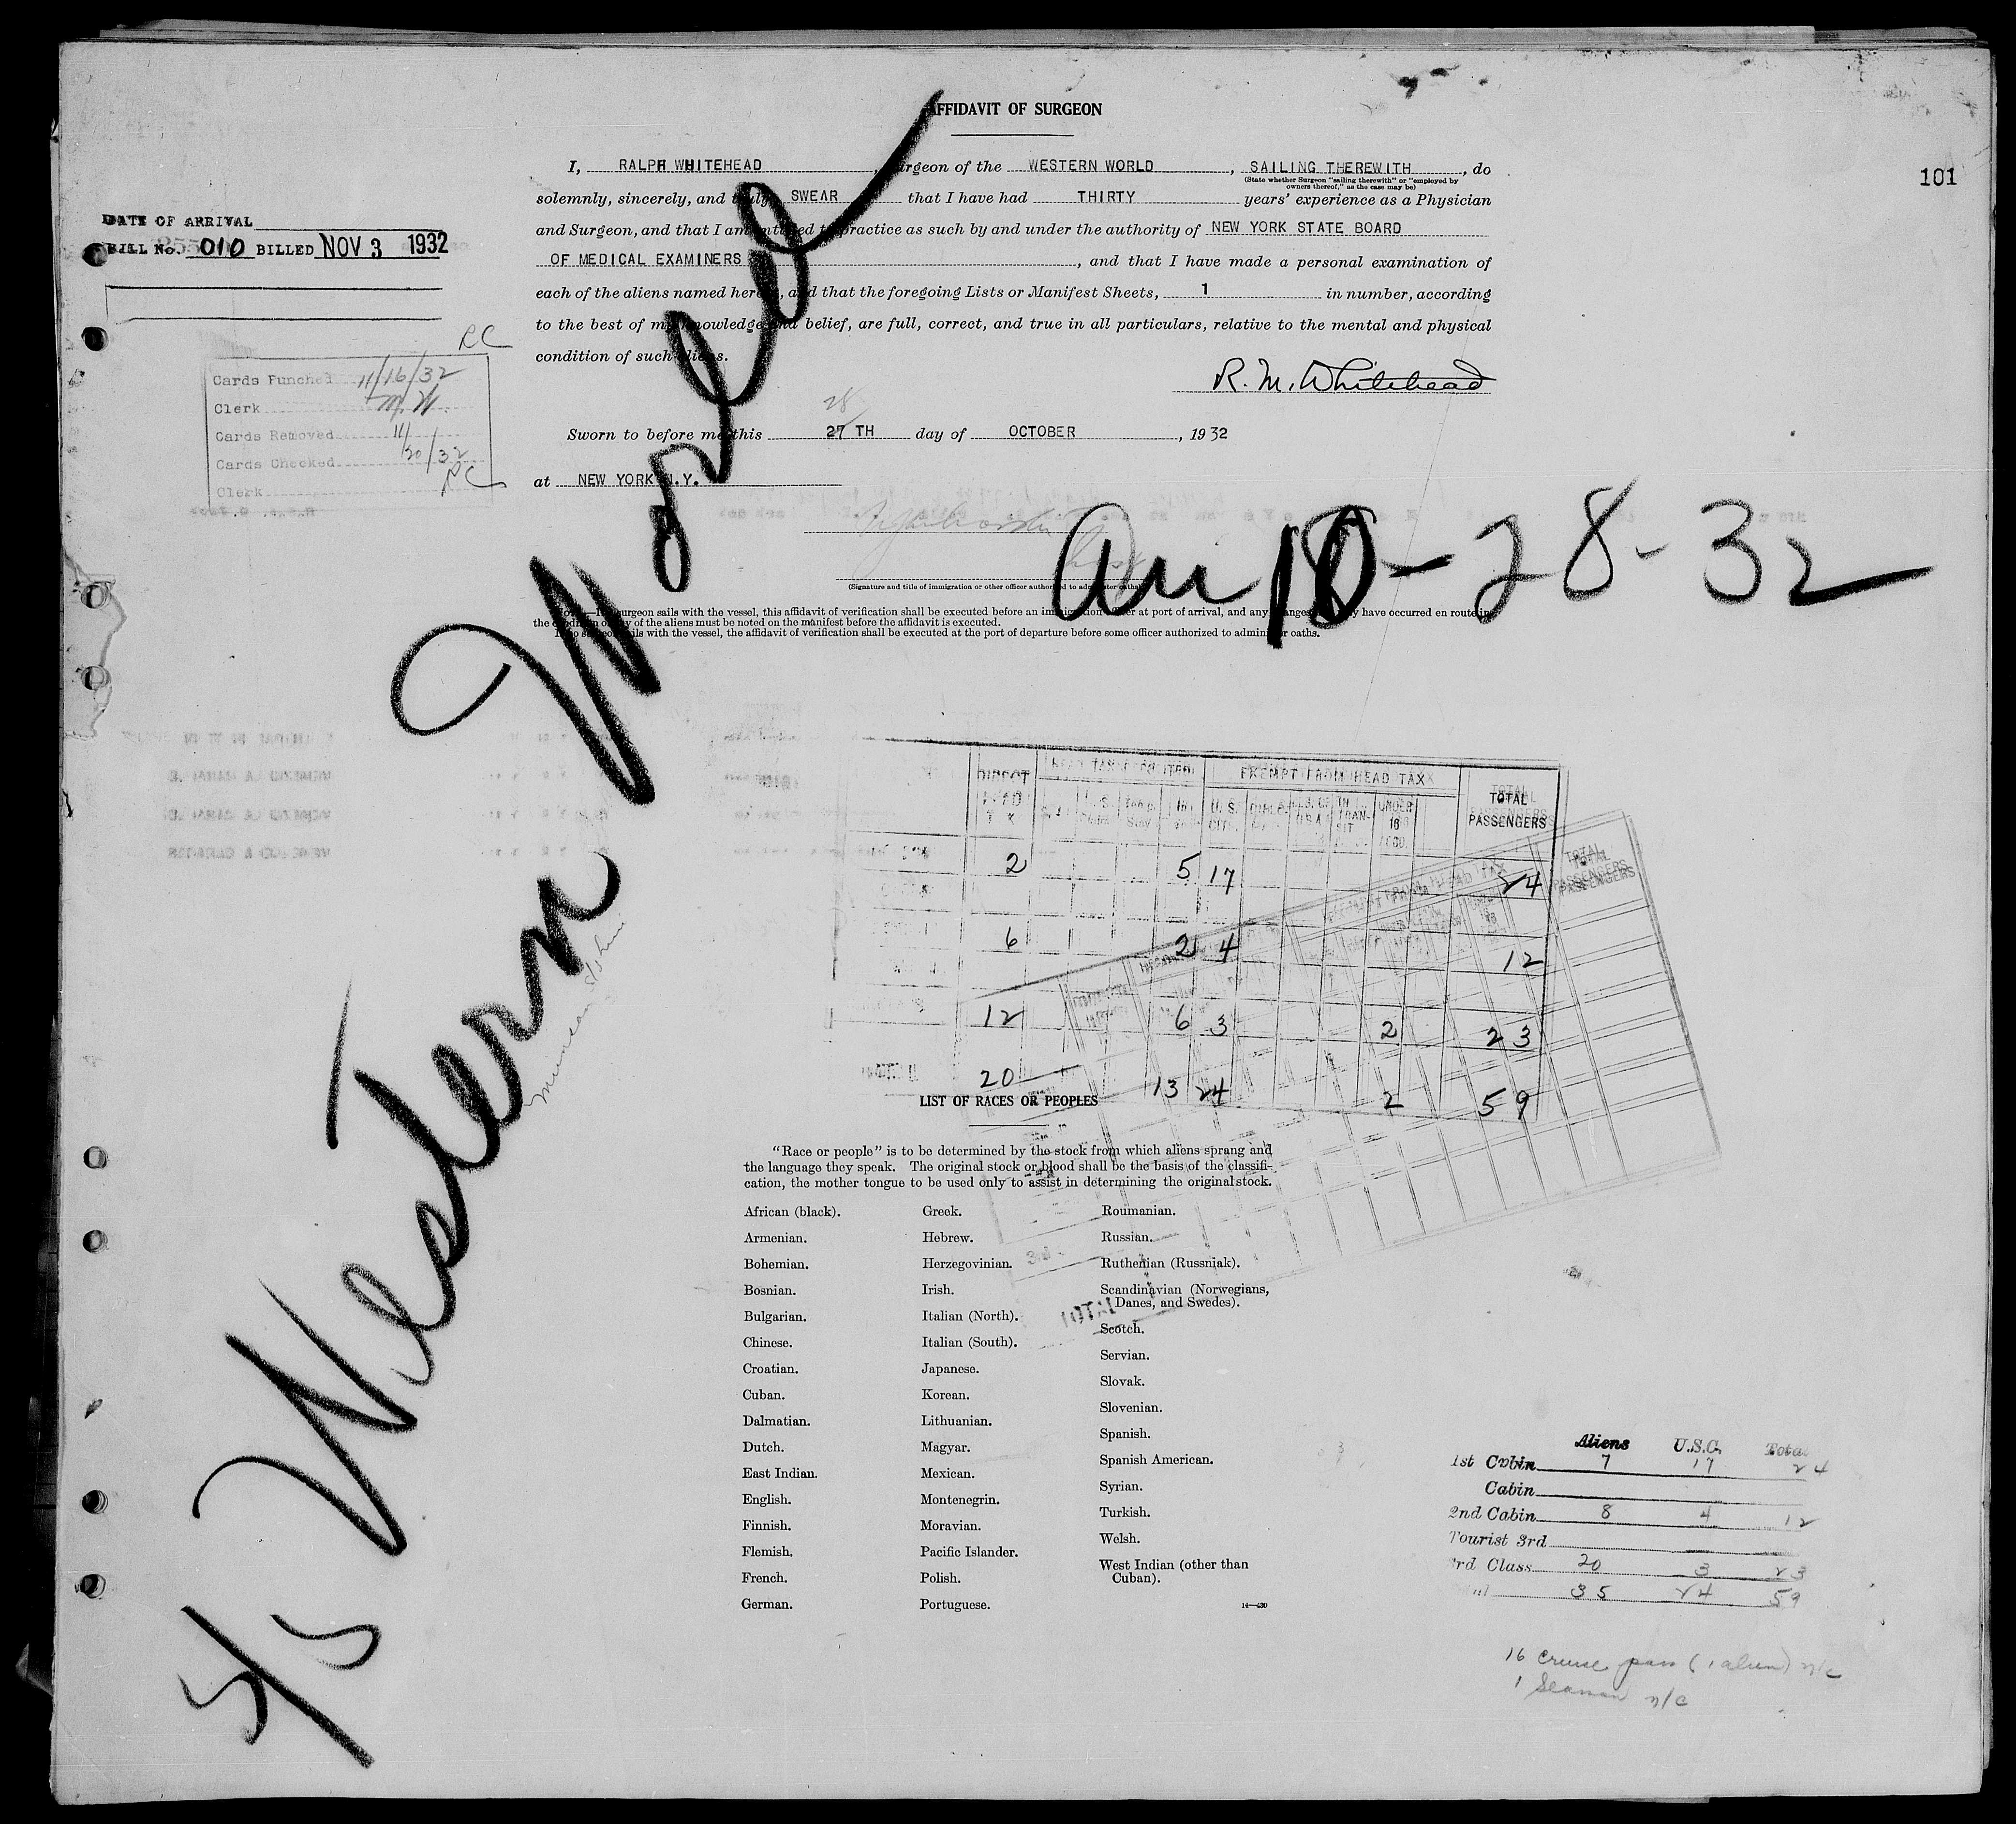 AFFIDAVIT OF SURGEON
101
I, RALPH WHITEHEAD, Surgeon of the WESTERN WORLD, SAILING THEREWITH, do
(State whether Surgeon "sailing therewith" or "employed by
owners thereof," as the case may be)
solemnly, sincerely, and truly SWEAR that I have had THIRTY years' experience as a Physician
and Surgeon, and that I am entitled to practice as such by and under the authority of NEW YORK STATE BOARD
OF MEDICAL EXAMINERS, and that I have made a personal examination of
each of the aliens named herein, and that the foregoing Lists or Manifest Sheets, 1 in number, according
to the best of my knowledge and belief, are full, correct, and true in all particulars, relative to the mental and physical
condition of such aliens.
R. M. Whitehead
28
Sworn to before me this 27 TH day of OCTOBER, 1932
at NEW YORK N.Y.
(Signature and title of immigration or other officer authorized to administer oaths)
NOTE.—If a surgeon sails with the vessel, this affidavit of verification shall be executed before an immigration officer at port of arrival, and any changes which may have occurred en route in
the condition of any of the aliens must be noted on the manifest before the affidavit is executed.
If no surgeon sails with the vessel, the affidavit of verification shall be executed at the port of departure before some officer authorized to administer oaths.
DATE OF ARRIVAL
BILL No. 010 BILLED NOV 3 1932
RC
Cards Punched 11/16/32
Clerk M.W.
Cards Removed 11/
Cards Checked 20/32
Clerk RC
S/S Western World
Munson
Arr 10-28-32
DIRECT HEAD TAX EXEMPT FROM HEAD TAX TOTAL PASSENGERS
U.S. CIT. IN TRANSIT UNDER 16
2 5 17 24
6 2 4 12
12 6 3 2 23
20 13 24 2 59
TOTAL PASSENGERS
3rd
TOTAL
LIST OF RACES OR PEOPLES
"Race or people" is to be determined by the stock from which aliens sprang and
the language they speak. The original stock or blood shall be the basis of the classifi-
cation, the mother tongue to be used only to assist in determining the original stock.
African (black).
Armenian.
Bohemian.
Bosnian.
Bulgarian.
Chinese.
Croatian.
Cuban.
Dalmatian.
Dutch.
East Indian.
English.
Finnish.
Flemish.
French.
German.
Greek.
Hebrew.
Herzegovinian.
Irish.
Italian (North).
Italian (South).
Japanese.
Korean.
Lithuanian.
Magyar.
Mexican.
Montenegrin.
Moravian.
Pacific Islander.
Polish.
Portuguese.
Roumanian.
Russian.
Ruthenian (Russniak).
Scandinavian (Norwegians,
Danes, and Swedes).
Scotch.
Servian.
Slovak.
Slovenian.
Spanish.
Spanish American.
Syrian.
Turkish.
Welsh.
West Indian (other than
Cuban).
14—430
Aliens U.S.C. Total
1st Cabin 7 17 24
Cabin
2nd Cabin 8 4 12
Tourist 3rd
3rd Class 20 3 23
Total 35 24 59
16 cruise pass (1 alien) n/c
1 Seaman n/c